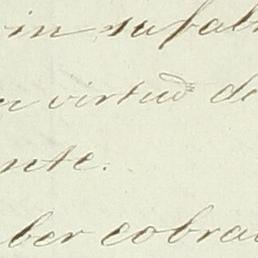 in su fal
virtud de
nte.
ber cobra